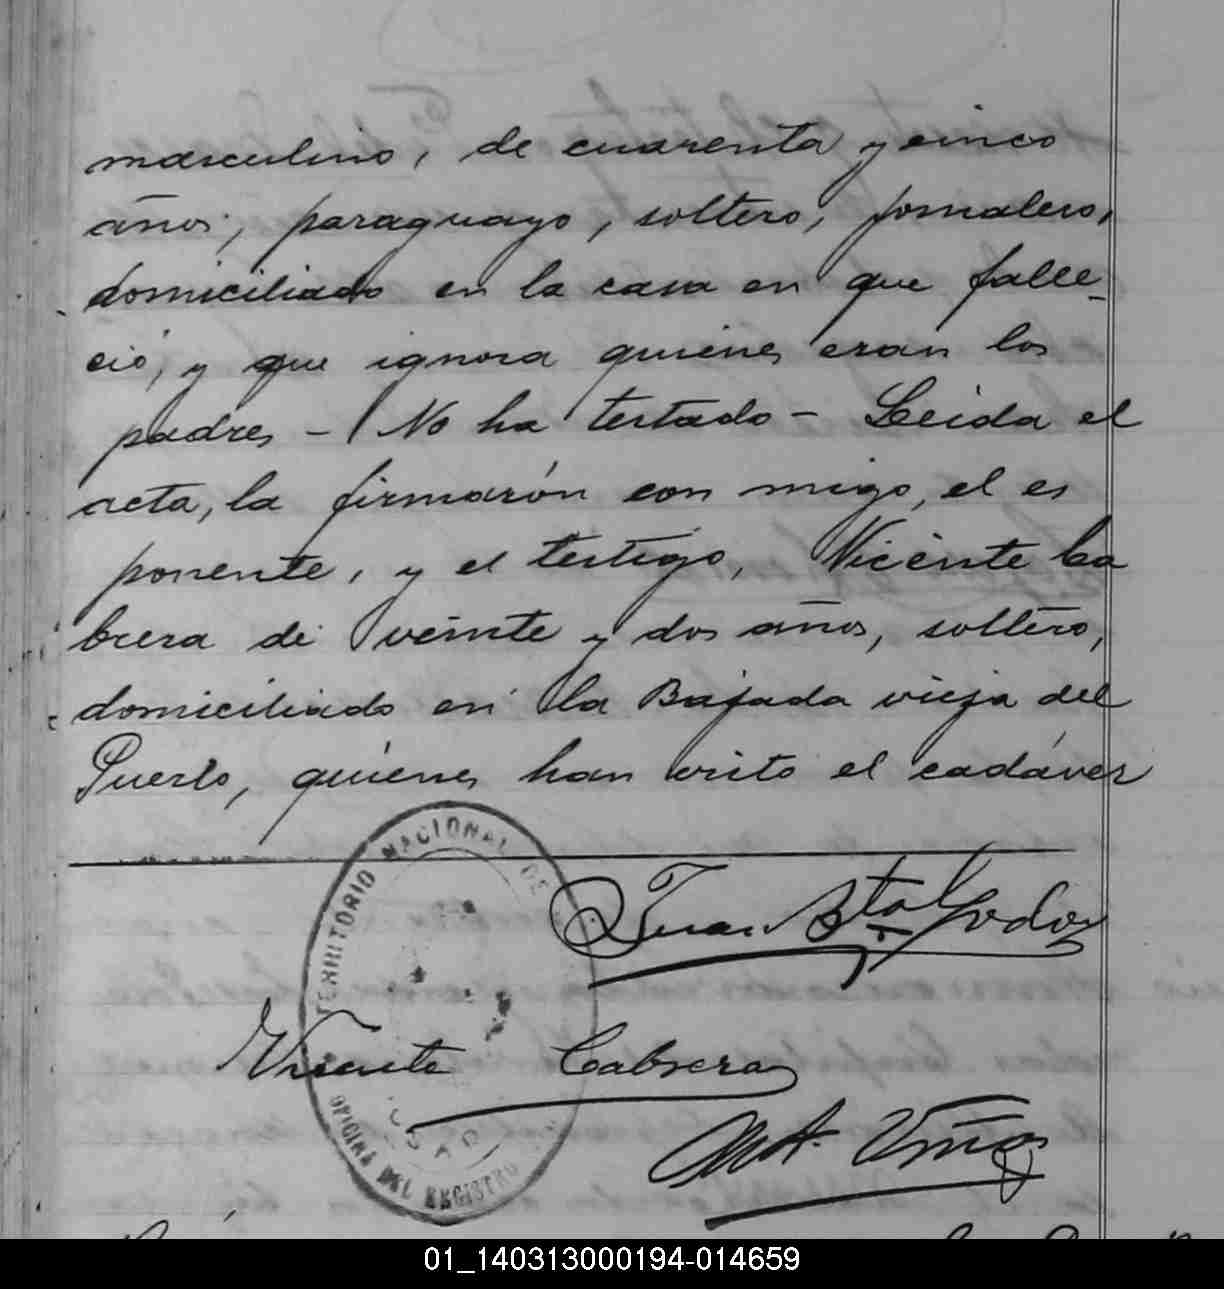 masculino, de cuarenta y cinco
años, paraguayo, soltero, jornalero,
domiciliado en la casa en que falle-
ció, y que ignora quiénes eran los
padres - No ha testado - Leida el
acta, la firmarón con migo, el es
ponente, y el testigo, Vicénte Ca
brera de veinte y dos años, soltero,
domiciliado en la Bajada vieja del
Puerto, quiénes han visto el cadáver
TERRITORIO NACIONAL DE
Juan Bta Godoy
Vicente Cabrera
OFICINA DEL REGISTRO
01_140313000194-014659